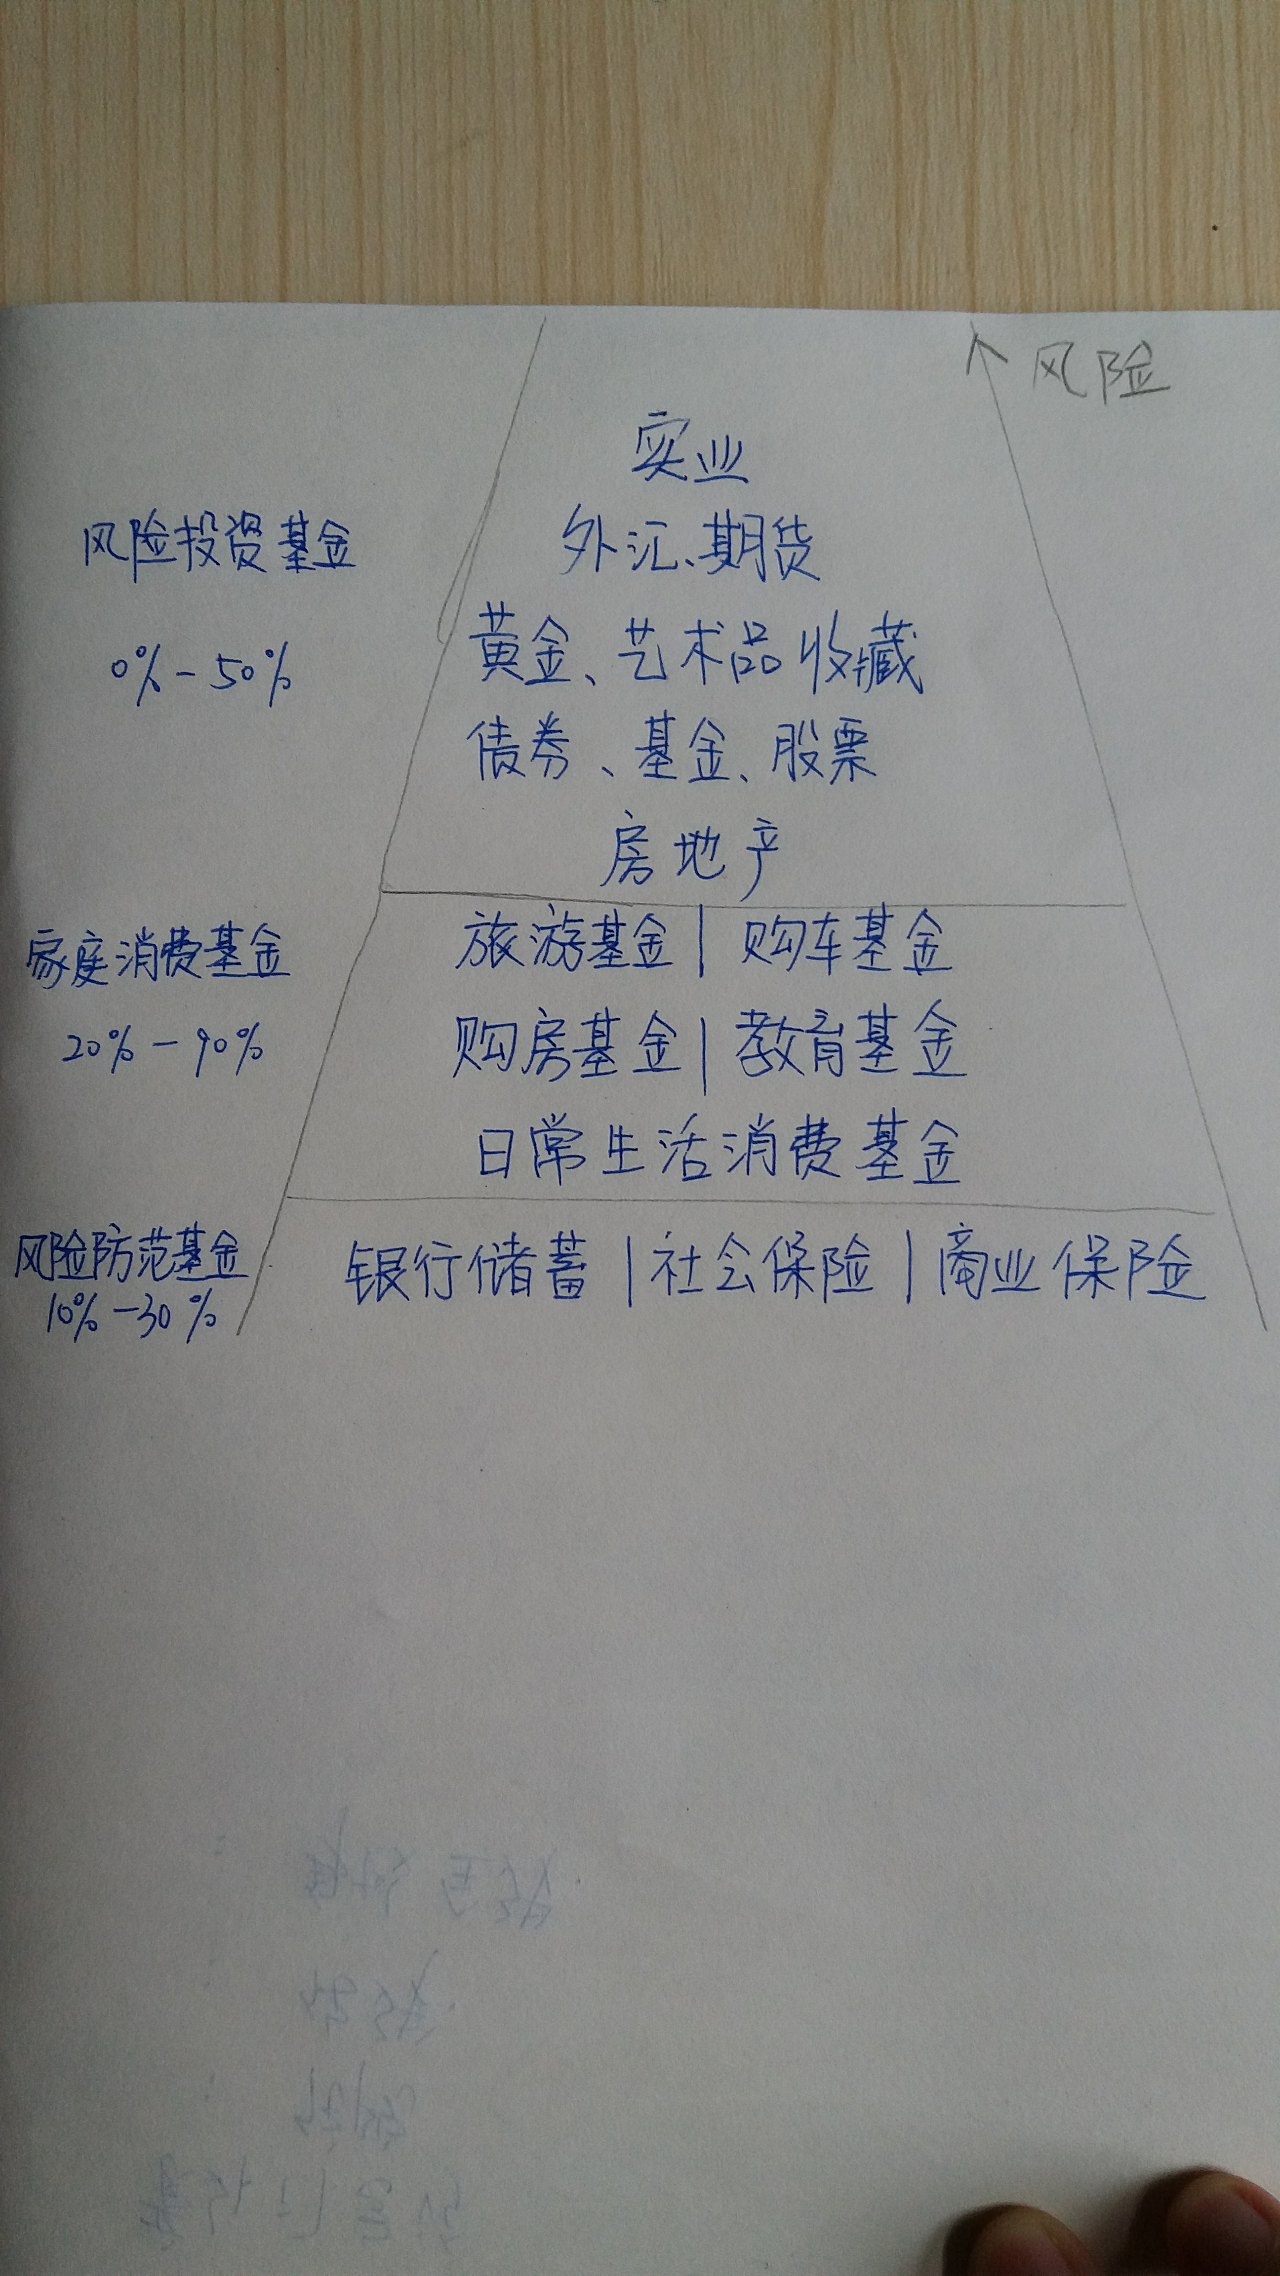 ↑ 风险
实业
外汇、期货
风险投资基金
黄金、艺术品收藏
0%-50%
债券、基金、股票
房地产
旅游基金|购车基金
家庭消费基金
购房基金|教育基金
20%-90%
日常生活消费基金
风险防范基金
银行储蓄|社会保险|商业保险
10%-30%